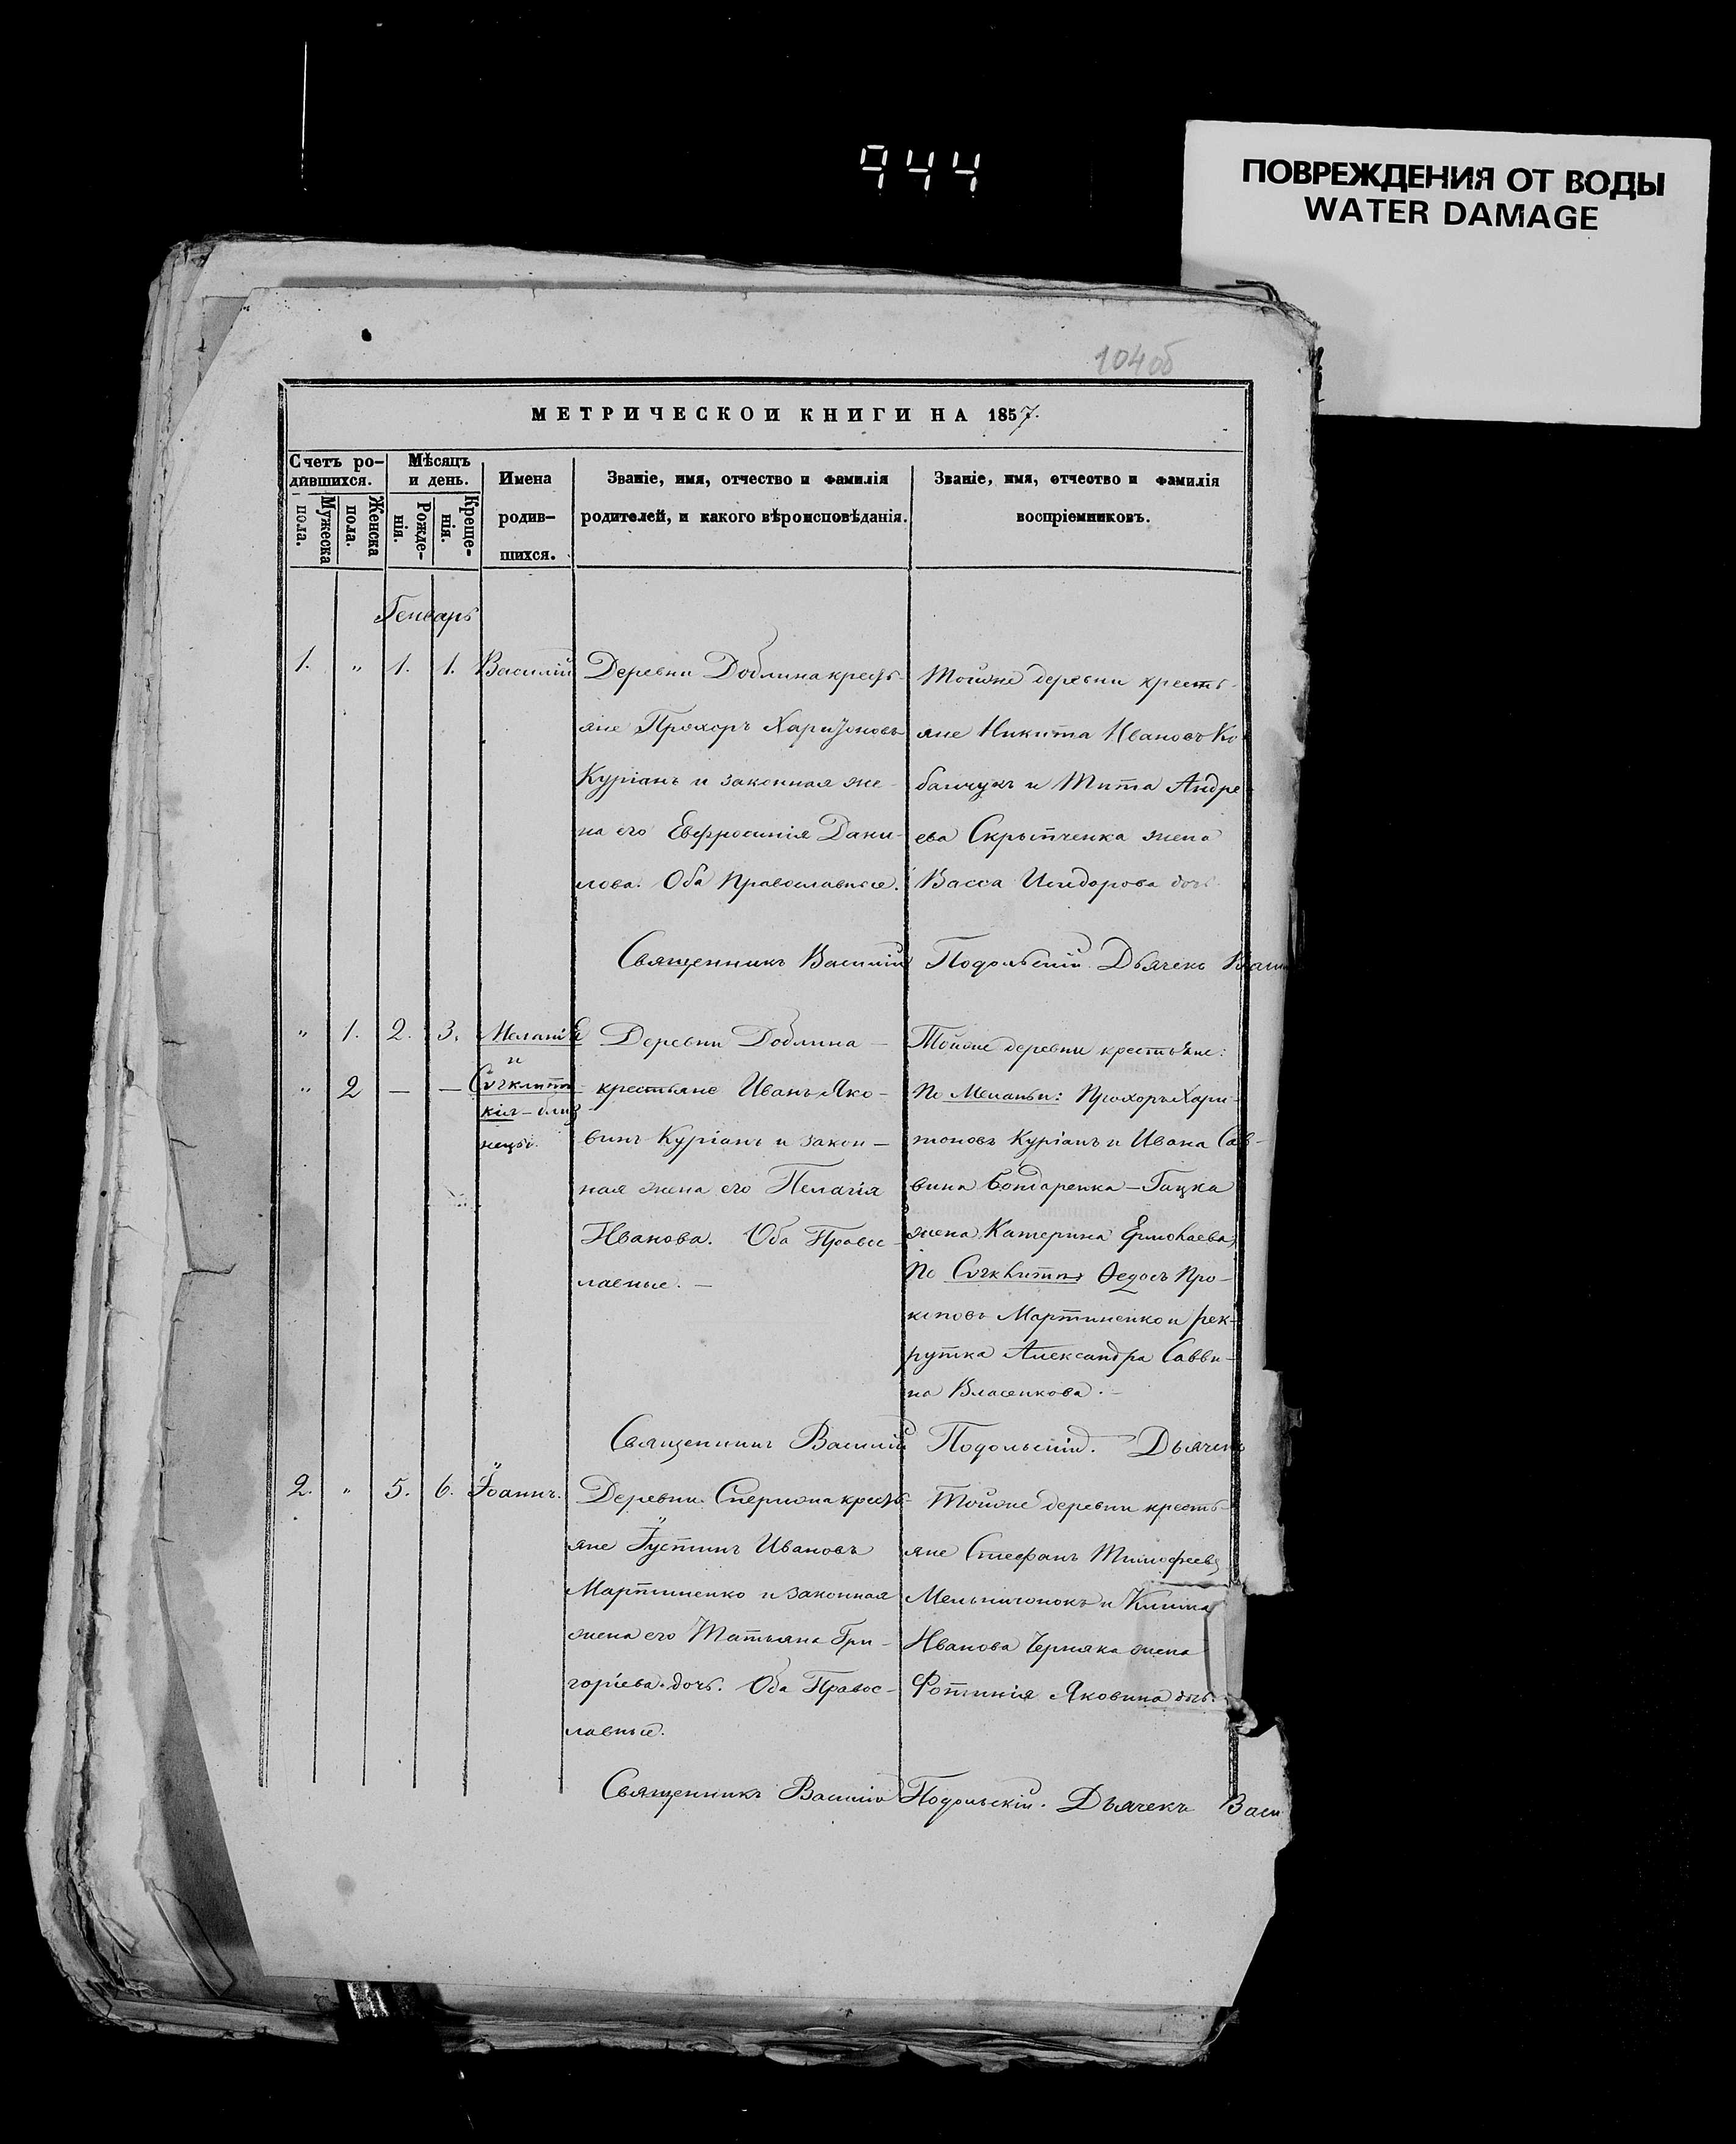 944
ПОВРЕЖДЕНИЯ ОТ ВОДЫ
WATER DAMAGE
104об
МЕТРИЧЕСКОИ КНИГИ НА 1857.
Счетъ ро-
дившихся.
Мужеска
пола.
Женска
пола.
Мѣсяцъ
и день.
Рожде-
нія.
Креще-
нія.
Имена
родив-
шихся.
Званіе, имя, отчество и фамилія
родителей, и какого вѣроисповѣданія.
Званіе, имя, отчество и фамилія
воспріемниковъ.
Генварь
1. „ 1. 1. Василій
Деревни Доблина крестъ-
яне Прохоръ Харитоновъ
Куріанъ и законная же-
на его Евфросинія Дани-
лова. Оба Православные.
Тойже деревни кресть-
яне Никита Ивановъ Ко
банчукъ и Тита Андре
ева Скрыпченка жена
Васса Исидорова дочь.
Священникъ Василій Подольскій Дьячекъ
„ 1. 2. 3. Меланія
и
„ 2 — — Сугклити
кія - близ
нецы.
Деревни Доблина —
крестьяне Иванъ Яко-
винъ Куріанъ и закон-
ная жена его Пелагія
Иванова. Оба Правос
лавные. —
Тойже деревни крестьяне:
По Меланьи: Прохоръ Хари-
тоновъ Куріанъ и Ивана Сав-
вина Бондаренка - Гацка
жена Катерина Ермолаева,
По Ѳедосъ Про-
коповъ Мартиненко и рек-
рутка Александра Савви-
на Власенкова. —
Священникъ Василій Подольскій. Дьячекъ
2. „ 5. 6. Іоаннъ.
Деревни крестъ-
яне Іустинъ Ивановъ
Мартиненко и законная
жена его Татьяна Гри-
горіева дочь. Оба Правос-
лавные.
Тойже деревни кресть-
яне Стефанъ Тимофеевъ
Мельничонокъ и Клима
Иванова Черняка жена
Фотинія Яковина дочь.
Священникъ Василій Подольскій. Дьячекъ Васи